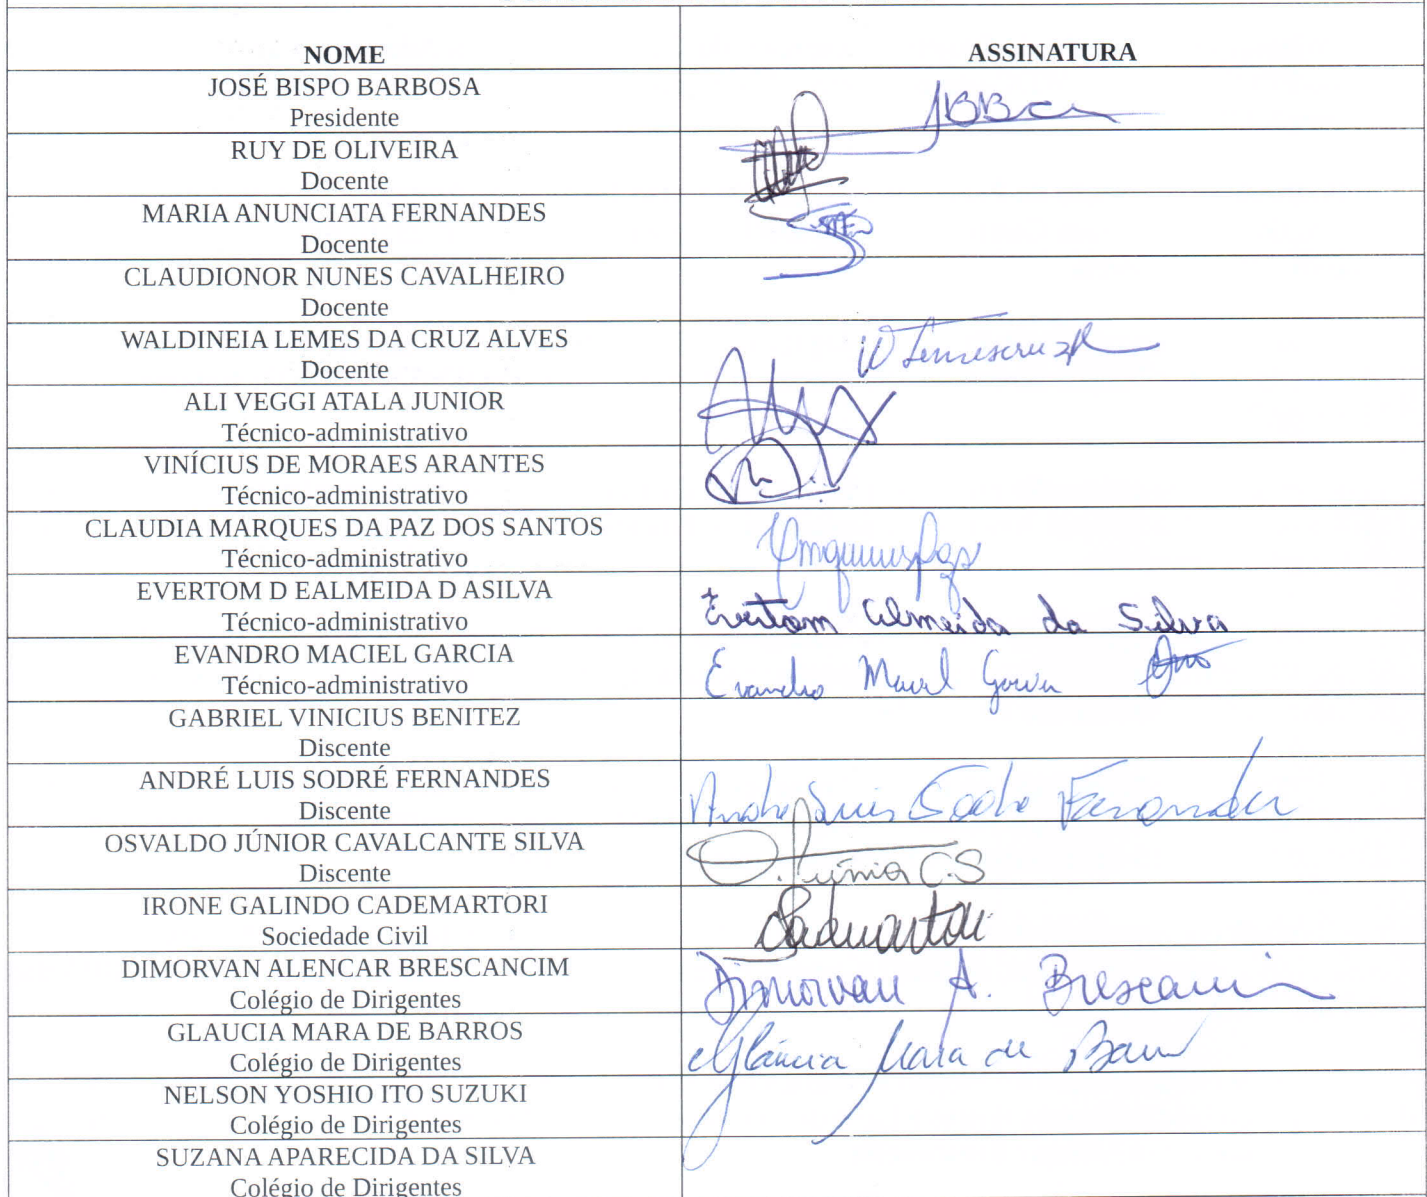 NOME ASSINATURA
JOSÉ BISPO BARBOSA
Presidente
RUY DE OLIVEIRA
Docente
MARIA ANUNCIATA FERNANDES
Docente
CLAUDIONOR NUNES CAVALHEIRO
Docente
WALDINEIA LEMES DA CRUZ ALVES
Docente
ALI VEGGI ATALA JUNIOR
Técnico-administrativo
VINÍCIUS DE MORAES ARANTES
Técnico-administrativo
CLAUDIA MARQUES DA PAZ DOS SANTOS
Técnico-administrativo
EVERTOM D EALMEIDA D ASILVA
Técnico-administrativo Evertom Almeida da Silva
EVANDRO MACIEL GARCIA
Técnico-administrativo Evandro Maciel Garcia
GABRIEL VINICIUS BENITEZ
Discente
ANDRÉ LUIS SODRÉ FERNANDES
Discente Andre Luis Sodré Fernandes
OSVALDO JÚNIOR CAVALCANTE SILVA
Discente O. Júnior C.S
IRONE GALINDO CADEMARTORI
Sociedade Civil Cademartori
DIMORVAN ALENCAR BRESCANCIM
Colégio de Dirigentes Dimorvan A. Brescancim
GLAUCIA MARA DE BARROS
Colégio de Dirigentes Gláucia Mara de Barros
NELSON YOSHIO ITO SUZUKI
Colégio de Dirigentes
SUZANA APARECIDA DA SILVA
Colégio de Dirigentes